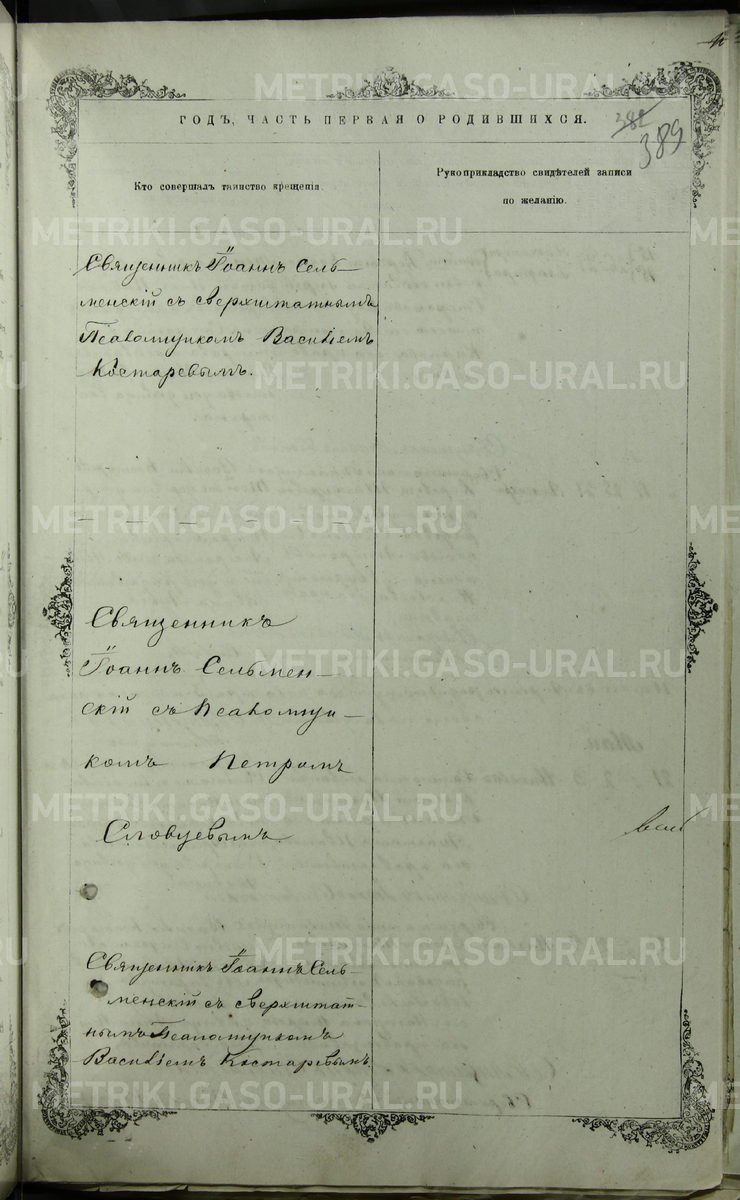 METRIKI.GASO-URAL.RU
ГОДЪ, ЧАСТЬ ПЕРВАЯ О РОДИВШИХСЯ.
382
389
Кто совершалъ таинство крещенія.
Рукоприкладство свидѣтелей записи
по желанію.
Священникъ Іоаннъ Сель-
менскій съ сверхштатнымъ
Псаломщикомъ Василіемъ
Костаревымъ.
Священникъ
Іоаннъ Сельмен-
скій съ Псаломщи-
комъ Петромъ
Словцевымъ.
Священникъ Іоаннъ Сель-
менскій съ сверхштат-
нымъ Псаломщикомъ
Василіемъ Костаревымъ.